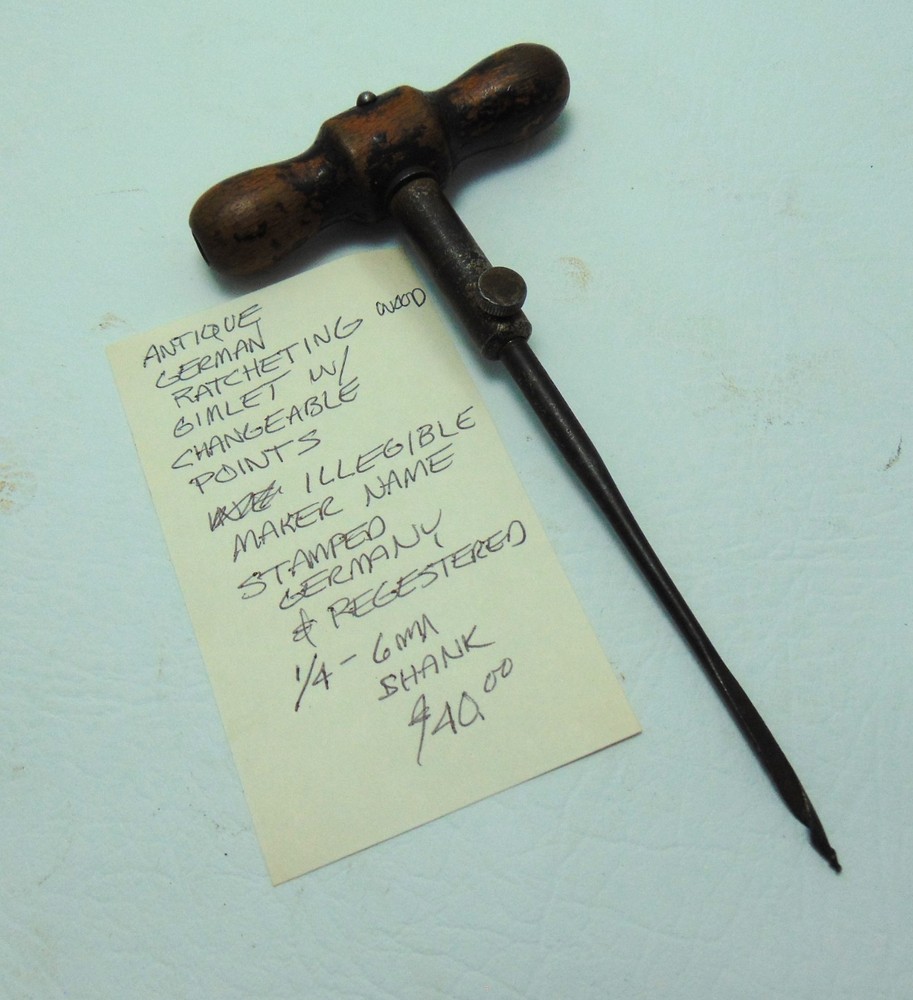 ANTIQUE
GERMAN
RATCHETING WOOD
GIMLET W/
CHANGEABLE
POINTS
ILLEGIBLE
MAKER NAME
STAMPED
GERMANY
& REGESTERED
1/4 - 6MM
SHANK
$40.00